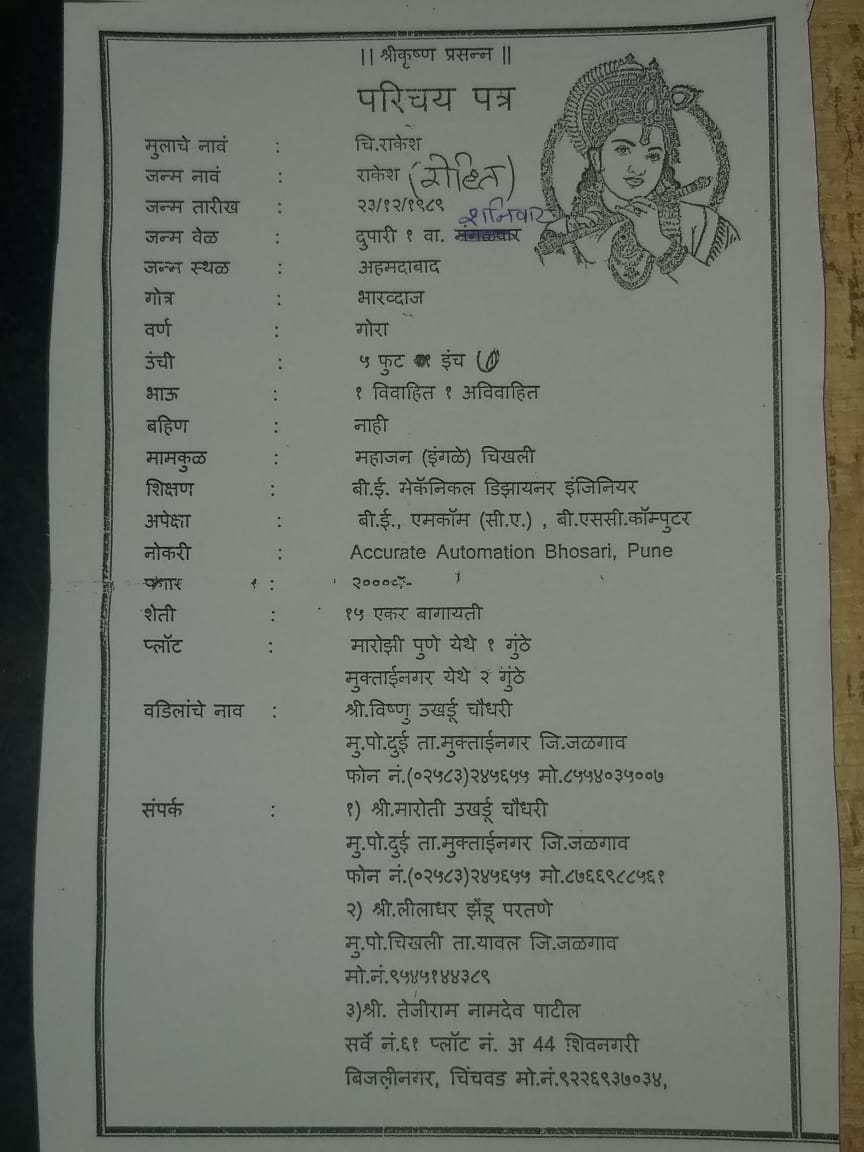 || श्रीकृष्ण प्रसन्न ||
परिचय पत्र
मुलाचे नावं : चि.राकेश
जन्म नावं : राकेश (रोहित)
जन्म तारीख : २३/१२/१९८९
जन्म वेळ : दुपारी १ वा. मंगळवार शनिवार
जन्म स्थळ : अहमदाबाद
गोत्र : भारव्दाज
वर्ण : गोरा
उंची : ५ फुट इंच
भाऊ : १ विवाहित १ अविवाहित
बहिण : नाही
मामकुळ : महाजन (इंगळे) चिखली
शिक्षण : बी.ई. मेकॅनिकल डिझायनर इंजिनियर
अपेक्षा : बी.ई., एमकॉम (सी.ए.) , बी.एससी.कॉम्पुटर
नोकरी : Accurate Automation Bhosari, Pune
पगार :
शेती : १५ एकर बागायती
प्लॉट : मारोझी पुणे येथे १ गुंठे
मुक्ताईनगर येथे २ गुंठे
वडिलांचे नाव : श्री.विष्णु उखर्डू चौधरी
मु.पो.दुई ता.मुक्ताईनगर जि.जळगाव
फोन नं.(०२५८३)२४५६५५ मो.८५५४०३५००७
संपर्क : १) श्री.मारोती उखर्डू चौधरी
मु.पो.दुई ता.मुक्ताईनगर जि.जळगाव
फोन नं.(०२५८३)२४५६५५ मो.८७६६९८८५६१
२) श्री.लीलाधर झेंडू परतणे
मु.पो.चिखली ता.यावल जि.जळगाव
मो.नं.९५४५१४४३८९
३)श्री. तेजीराम नामदेव पाटील
सर्वे नं.६१ प्लॉट नं. अ 44 शिवनगरी
बिजलीनगर, चिंचवड मो.नं.९२२६९३७०३४,